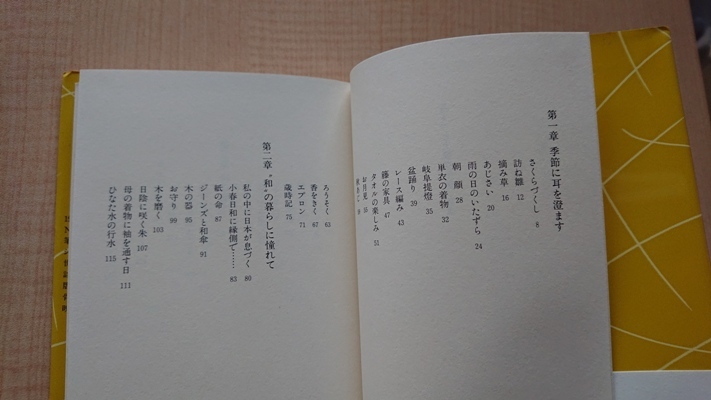 第一章 季節に耳を澄ます
さくらづくし 8
訪ね雛 12
摘み草 16
あじさい 20
雨の日のいたずら 24
朝顔 28
単衣の着物 32
岐阜提燈 35
盆踊り 39
レース編み 43
籐の家具 47
タオルの楽しみ 51
お月見 55
ろうそく 63
香をきく 67
エプロン 71
歳時記 75
第二章 “和”の暮らしに憧れて
私の中に日本が息づく 80
小春日和に縁側で…… 83
紙の命 87
ジーンズと和傘 91
木の器 95
お守り 99
木を磨く 103
日陰に咲く朱 107
母の着物に袖を通す日 111
ひなた水の行水 115